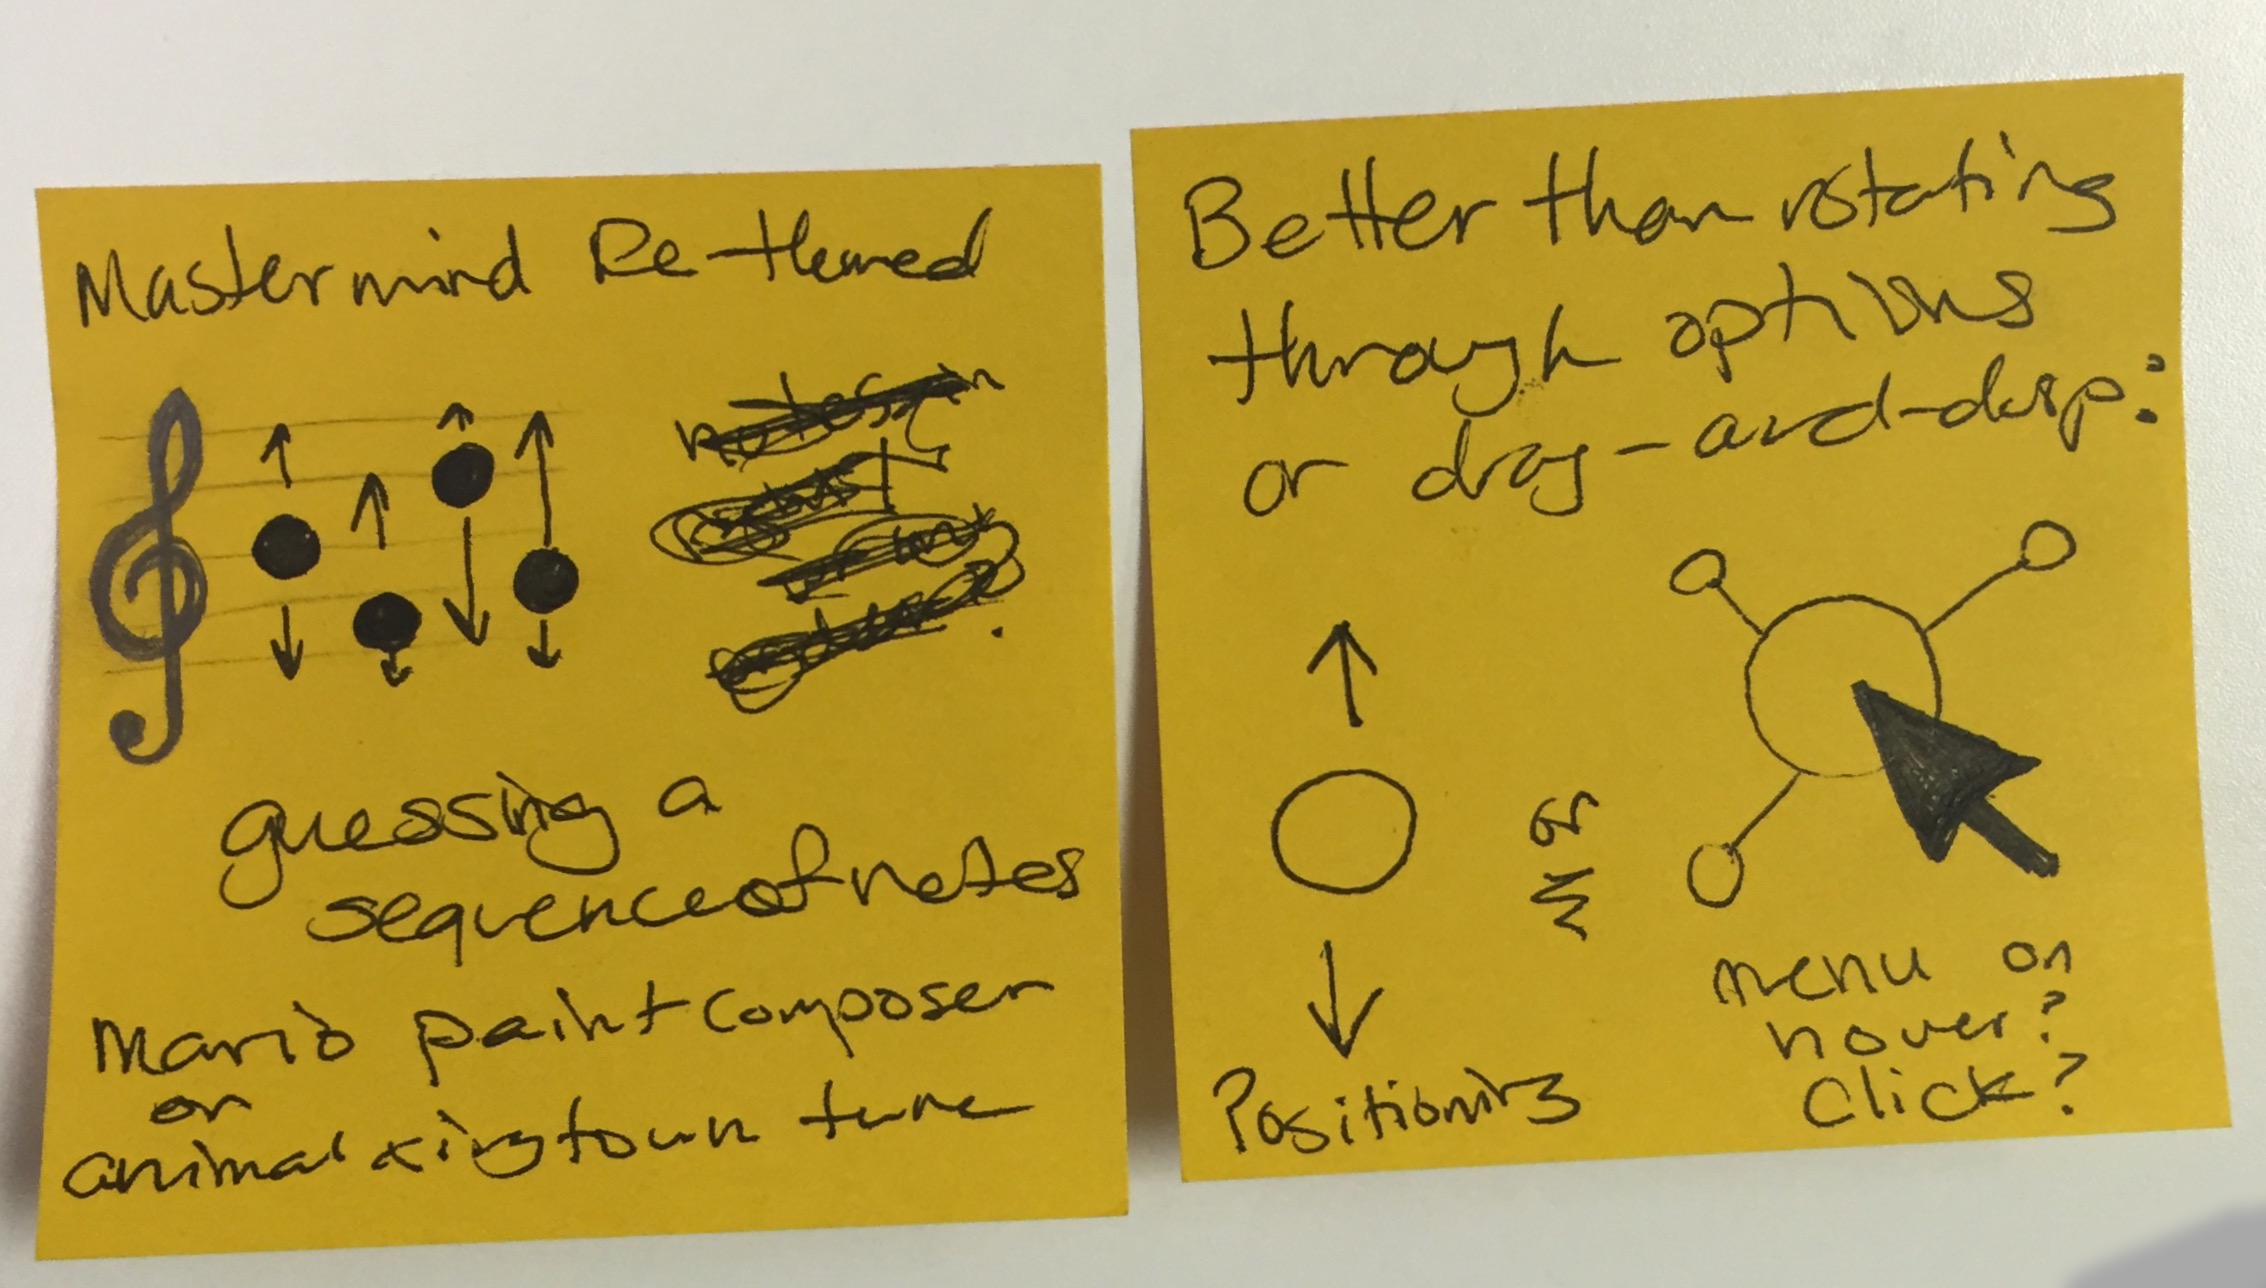 Mastermind Re-themed
guessing a
sequence of notes
Mario paint composer
or
animal xing town tune
Better than rotating
through options
or drag-and-drop:
or
Positioning
menu on
hover?
Click?